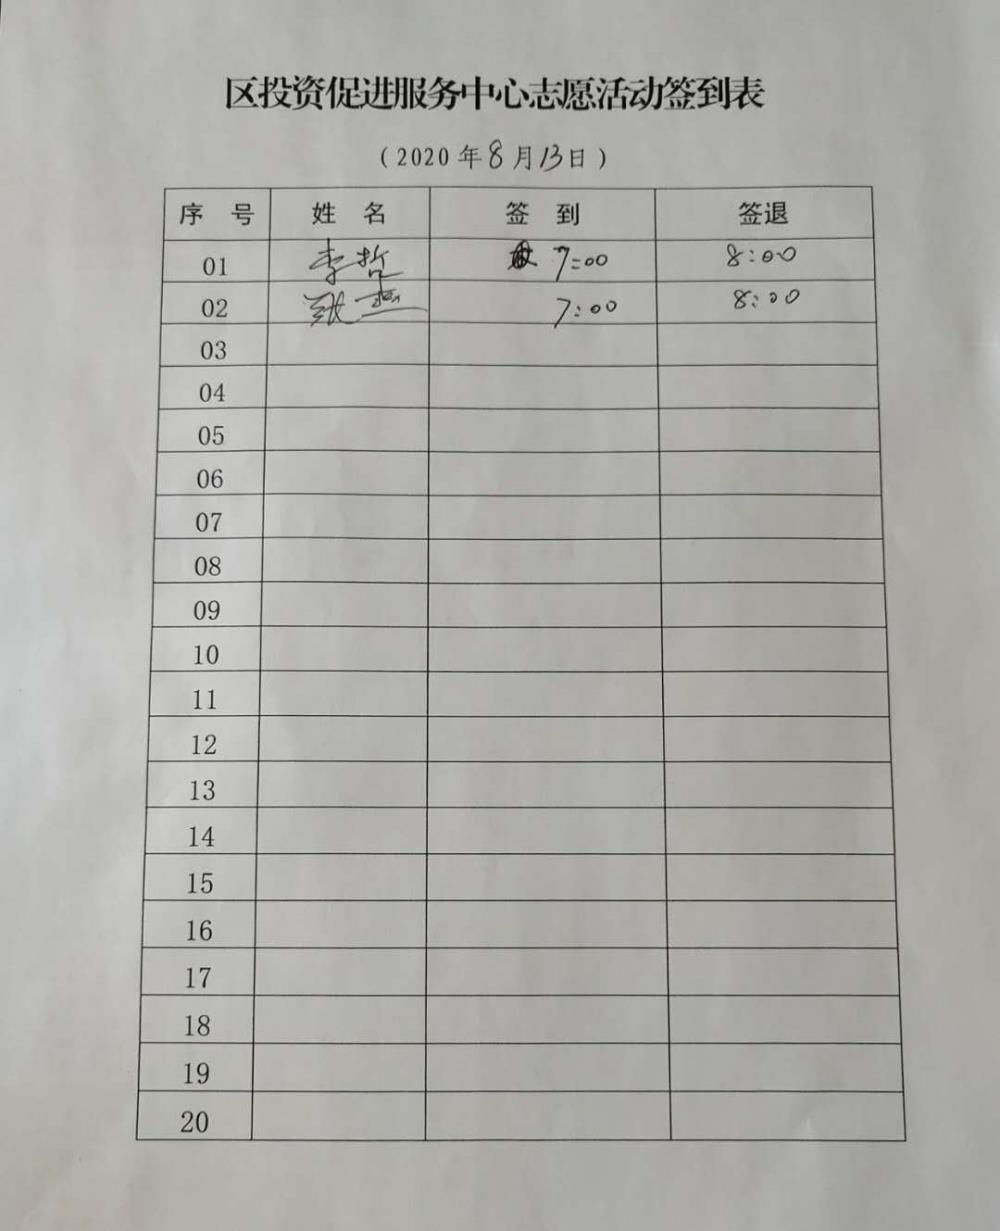 区投资促进服务中心志愿活动签到表
（2020 年 8 月 13 日）
序 号 姓 名 签 到 签退
01 李哲 7:00 8:00
02 张 7:00 8:00
03
04
05
06
07
08
09
10
11
12
13
14
15
16
17
18
19
20